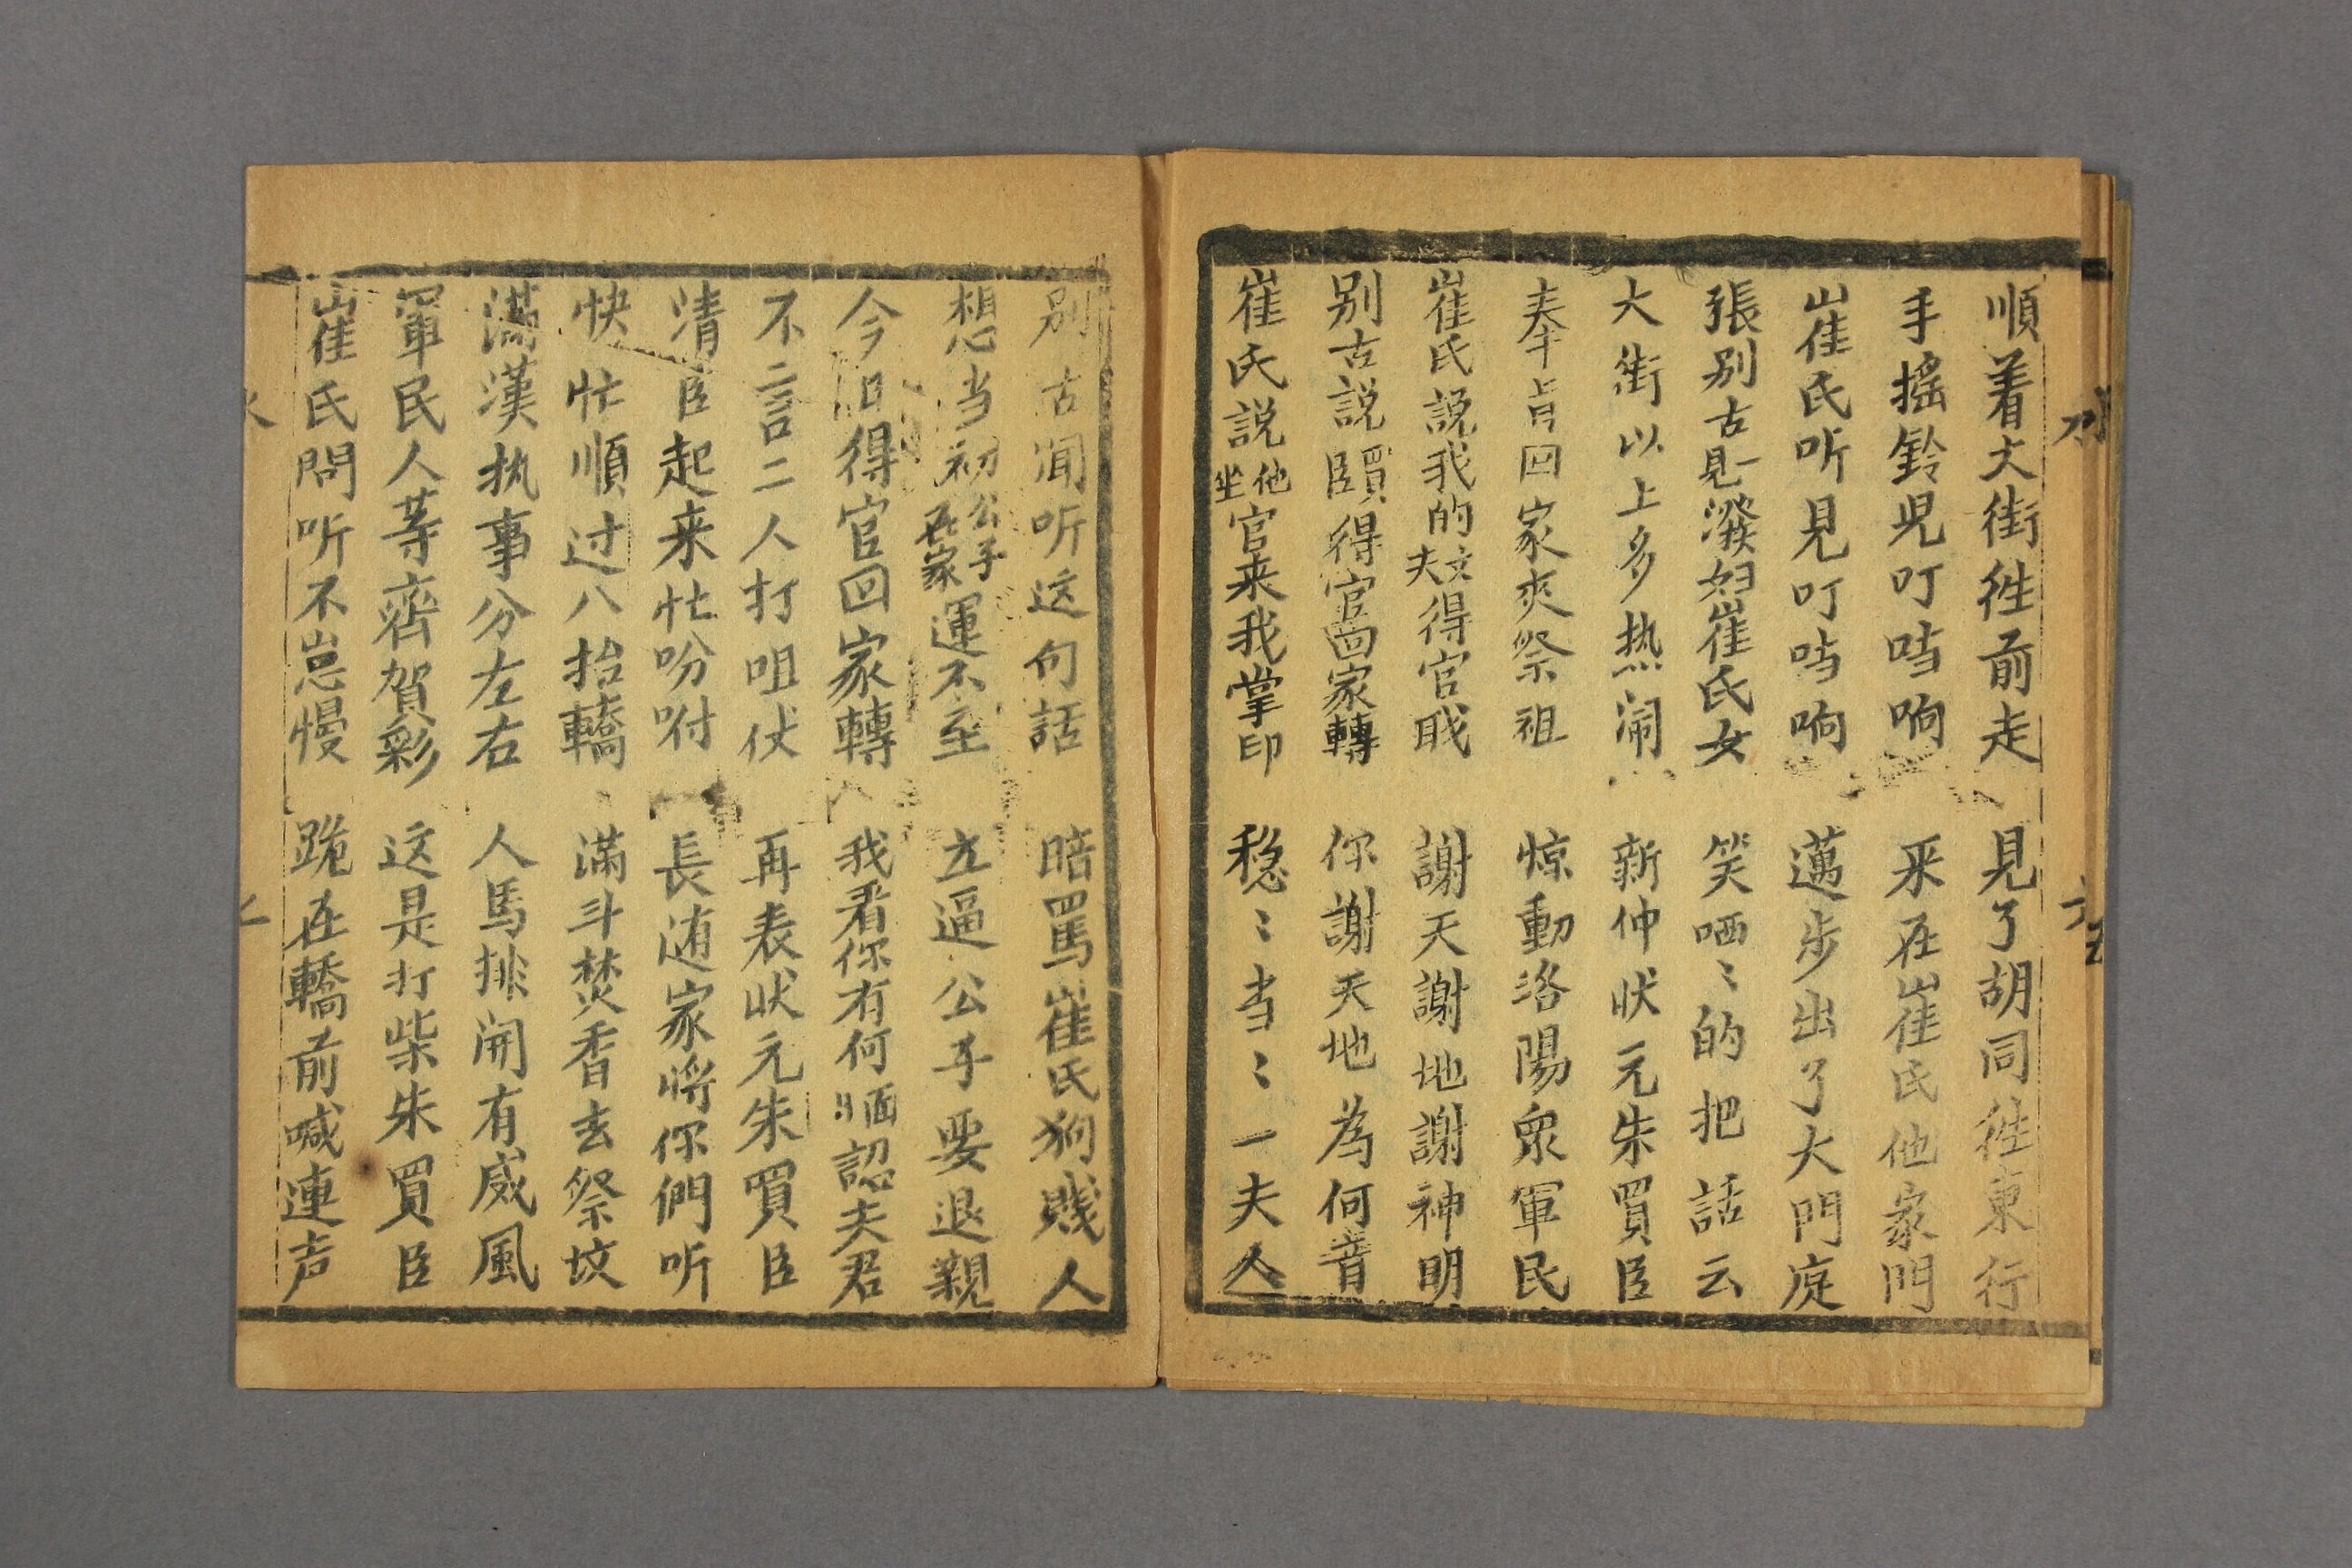 順着大街徃前走 見了胡同徃東行
手搖鈴児叮噹响 来在崔氏他家門
崔氏听見叮噹响 邁步出了大門庭
張別古一見潑妇崔氏女 笑哂〻的把話云
大街以上多热閙 新仲状元朱買臣
奉㫖回家來祭祖 惊動洛陽衆軍民
崔氏説我的丈夫得官戝 謝天謝地謝神明
別古説買臣得官回家轉 你謝天地為何音
崔氏説他坐官来我掌印 稳〻当〻一夫人
別古闻听这句話 暗罵崔氏狗賤人
想当初公子在家運不至 立逼公子要退親
今日得官回家轉 我看你有何面認夫君
不言二人打咀仗 再表状元朱買臣
清臣起来忙吩咐 長随家将你們听
快忙順过八抬轎 滿斗焚香去祭坟
滿漢执事分左右 人馬排開有威風
軍民人等齊賀彩 这是打柴朱買臣
崔氏問听不怠慢 跪在轎前喊連声